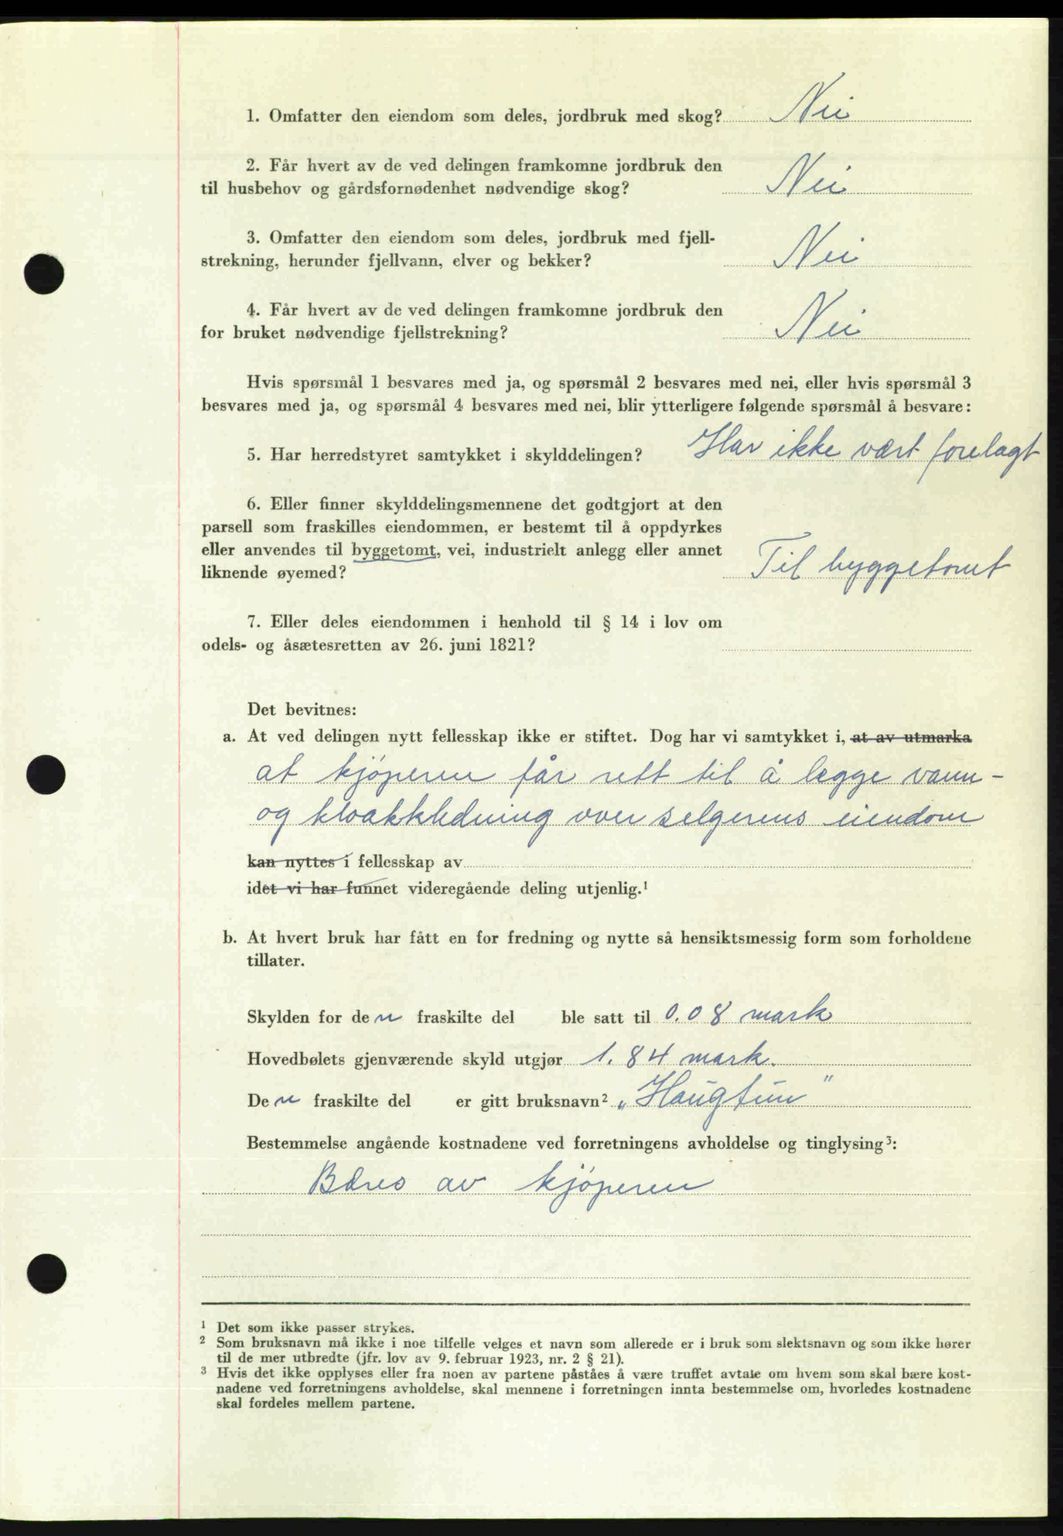 1. Omfatter den eiendom som deles, jordbruk med skog? Nei
2. Får hvert av de ved delingen framkomne jordbruk den
til husbehov og gårdsfornødenhet nødvendige skog? Nei
3. Omfatter den eiendom som deles, jordbruk med fjell-
strekning, herunder fjellvann, elver og bekker? Nei
4. Får hvert av de ved delingen framkomne jordbruk den
for bruket nødvendige fjellstrekning? Nei
Hvis spørsmål 1 besvares med ja, og spørsmål 2 besvares med nei, eller hvis spørsmål 3
besvares med ja, og spørsmål 4 besvares med nei, blir ytterligere følgende spørsmål å besvare:
5. Har herredstyret samtykket i skylddelingen? Har ikke vært forelagt
6. Eller finner skylddelingsmennene det godtgjort at den
parsell som fraskilles eiendommen, er bestemt til å oppdyrkes
eller anvendes til byggetomt, vei, industrielt anlegg eller annet
liknende øyemed? Til byggetomt
7. Eller deles eiendommen i henhold til § 14 i lov om
odels- og åsætesretten av 26. juni 1821?
Det bevitnes:
a. At ved delingen nytt fellesskap ikke er stiftet. Dog har vi samtykket i, at av utmarka
at kjøperen får rett til å lægge vann-
og kloakkledning over selgerens eiendom
kan nyttes i fellesskap av
idet vi har funnet videregående deling utjenlig.¹
b. At hvert bruk har fått en for fredning og nytte så hensiktsmessig form som forholdene
tillater.
Skylden for den fraskilte del ble satt til 0.08 mark
Hovedbølets gjenværende skyld utgjør 1.84 mark.
Den fraskilte del er gitt bruksnavn² „Haugtun"
Bestemmelse angående kostnadene ved forretningens avholdelse og tinglysing³:
Bæres av kjøperen
¹ Det som ikke passer strykes.
² Som bruksnavn må ikke i noe tilfelle velges et navn som allerede er i bruk som slektsnavn og som ikke hører
til de mer utbredte (jfr. lov av 9. februar 1923, nr. 2 § 21).
³ Hvis det ikke opplyses eller fra noen av partene påståes å være truffet avtale om hvem som skal bære kost-
nadene ved forretningens avholdelse, skal mennene i forretningen innta bestemmelse om, hvorledes kostnadene
skal fordeles mellem partene.